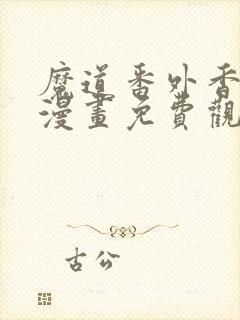 魔道番外香
漫畫免費觀
古公